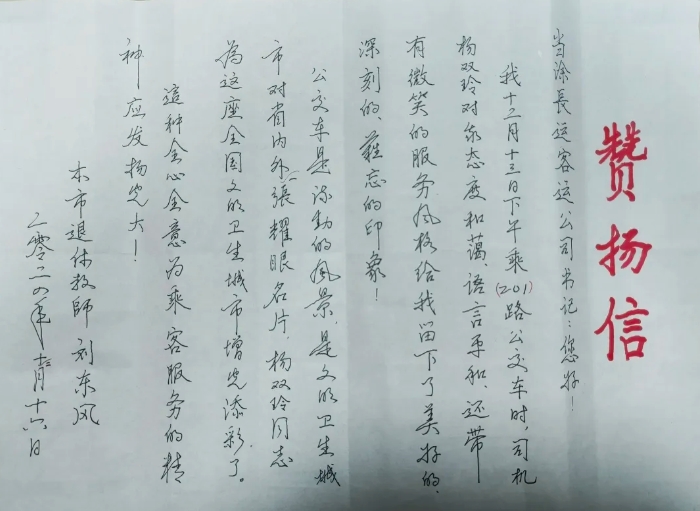 赞扬信
当涂長运客运公司书记：您好！
我十二月十三日下午乘(201)路公交车时，司机
杨双玲对乘态度和蔼、语言平和、还带
有微笑的服务风格给我留下了美好的、
深刻的、難忘的印象！
公交车是流动的风景，是文明卫生城
市对省内外一張耀眼名片，杨双玲同志
為这座全国文明卫生城市增光添彩了。
這种全心全意为乘客服务的精
神应发扬光大！
本市退休教師 刘东风
二零二四年十二月十六日